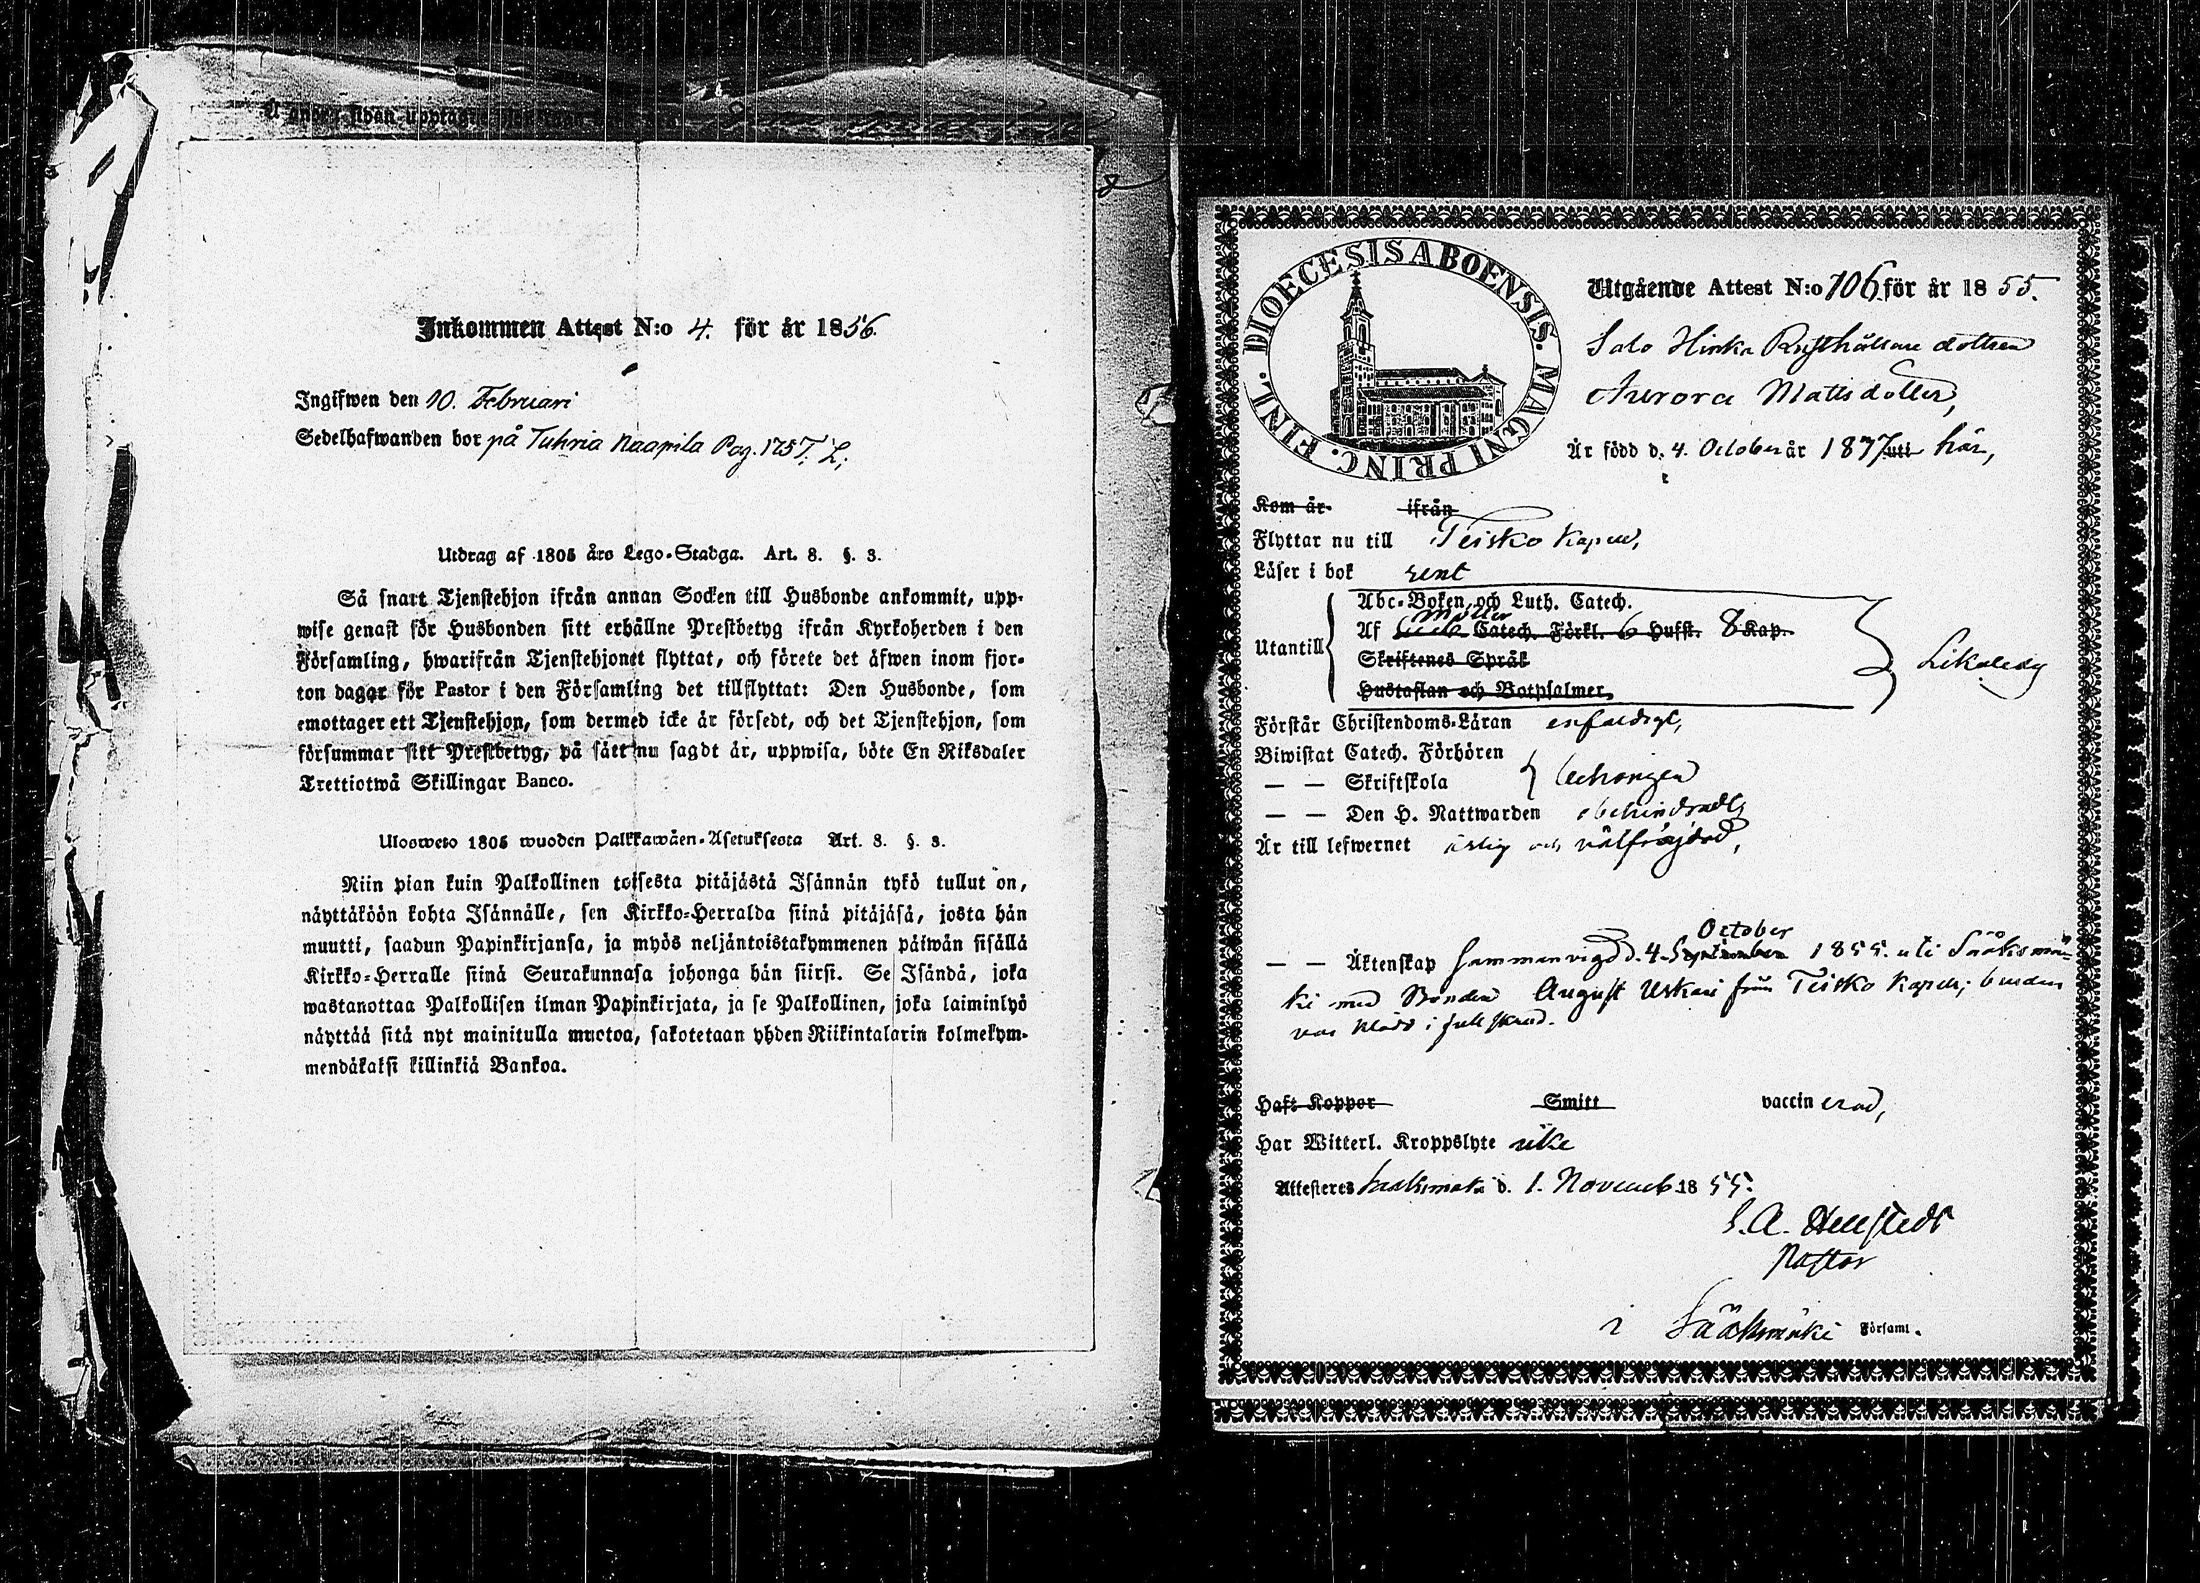 Inkommen Attest N:o 4. för år 1856.
Ingifwen den 10. Februari
Sedelhafwanden bor på Tuhria Naapila Pag. 175 T. L;
Utdrag af 1805 års Lego-Stadga. Art. 8. §. 3.
Så snart Tjenstehjon ifrån annan Socken till Husbonde ankommit, upp-
wise genast för Husbonden sitt erhållne Prestbetyg ifrån Kyrkoherden i den
Församling, hwarifrån Tjenstehjonet flyttat, och förete det äfwen inom fjor-
ton dagar för Pastor i den Församling det tillflyttat: Den Husbonde, som
emottager ett Tjenstehjon, som dermed icke är försedt, och det Tjenstehjon, som
försummar sitt Prestbetyg, på sätt nu sagdt är, uppwisa, böte En Riksdaler
Trettiotwå Skillingar Banco.
Ulosweto 1805 wuoden Palkkawäen-Asetuksesta Art. 8. §. 3.
Niin pian kuin Palkollinen toisesta pitäjästä Isännän tykö tullut on,
näyttäköön kohta Isännälle, sen Kirkko-Herralda siinä pitäjäsä, josta hän
muutti, saadun Papinkirjansa, ja myös neljäntoistakymmenen päiwän sisällä
Kirkko-Herralle siinä Seurakunnasa johonga hän siirsi. Se Isändä, joka
wastanottaa Palkollisen ilman Papinkirjata, ja se Palkollinen, joka laiminlyö
näyttää sitä nyt mainitulla muotoa, sakotetaan yhden Riikintalarin kolmekym-
mendäkaksi killinkiä Bankoa.
DIOECESIS ABOENSIS. MAGNI PRINC. FINL.
Utgående Attest N:o 106 för år 1855.
Salo Hirska Rusthållare dottren
Aurora Matts dotter,
Är född d. 4. October år 1837 uti här,
Kom år ifrån
Flyttar nu till Teisko Kapell,
Läser i bok rent
Abc-Boken och Luth. Catech.
Utantill Af Möller Catech. Förkl. 6 Hufst. 8 Kap.
Skriftenes Språk
Hustaflan och Botpsalmer.
Likaledes
Förstår Christendoms-Läran enfaldigt,
Biwistat Catech. Förhören
— — Skriftskola behörigen
— — Den H. Nattwarden obehindradt
Är till lefwernet ärlig och välfräjdad,
October
— — Äktenskap sammanvigd d. 4. September 1855. uti Sääksmä-
ki med Bonden August Uskari från Teisko Kapell; bruden
var klädd i full skrud.
Haft Koppor Smitt vaccinerad,
Har Witterl. Kroppslyte icke
Attesteras Sääksmäki d. 1. Novemb. 1855.
Pastor
i Sääksmäki Församl.